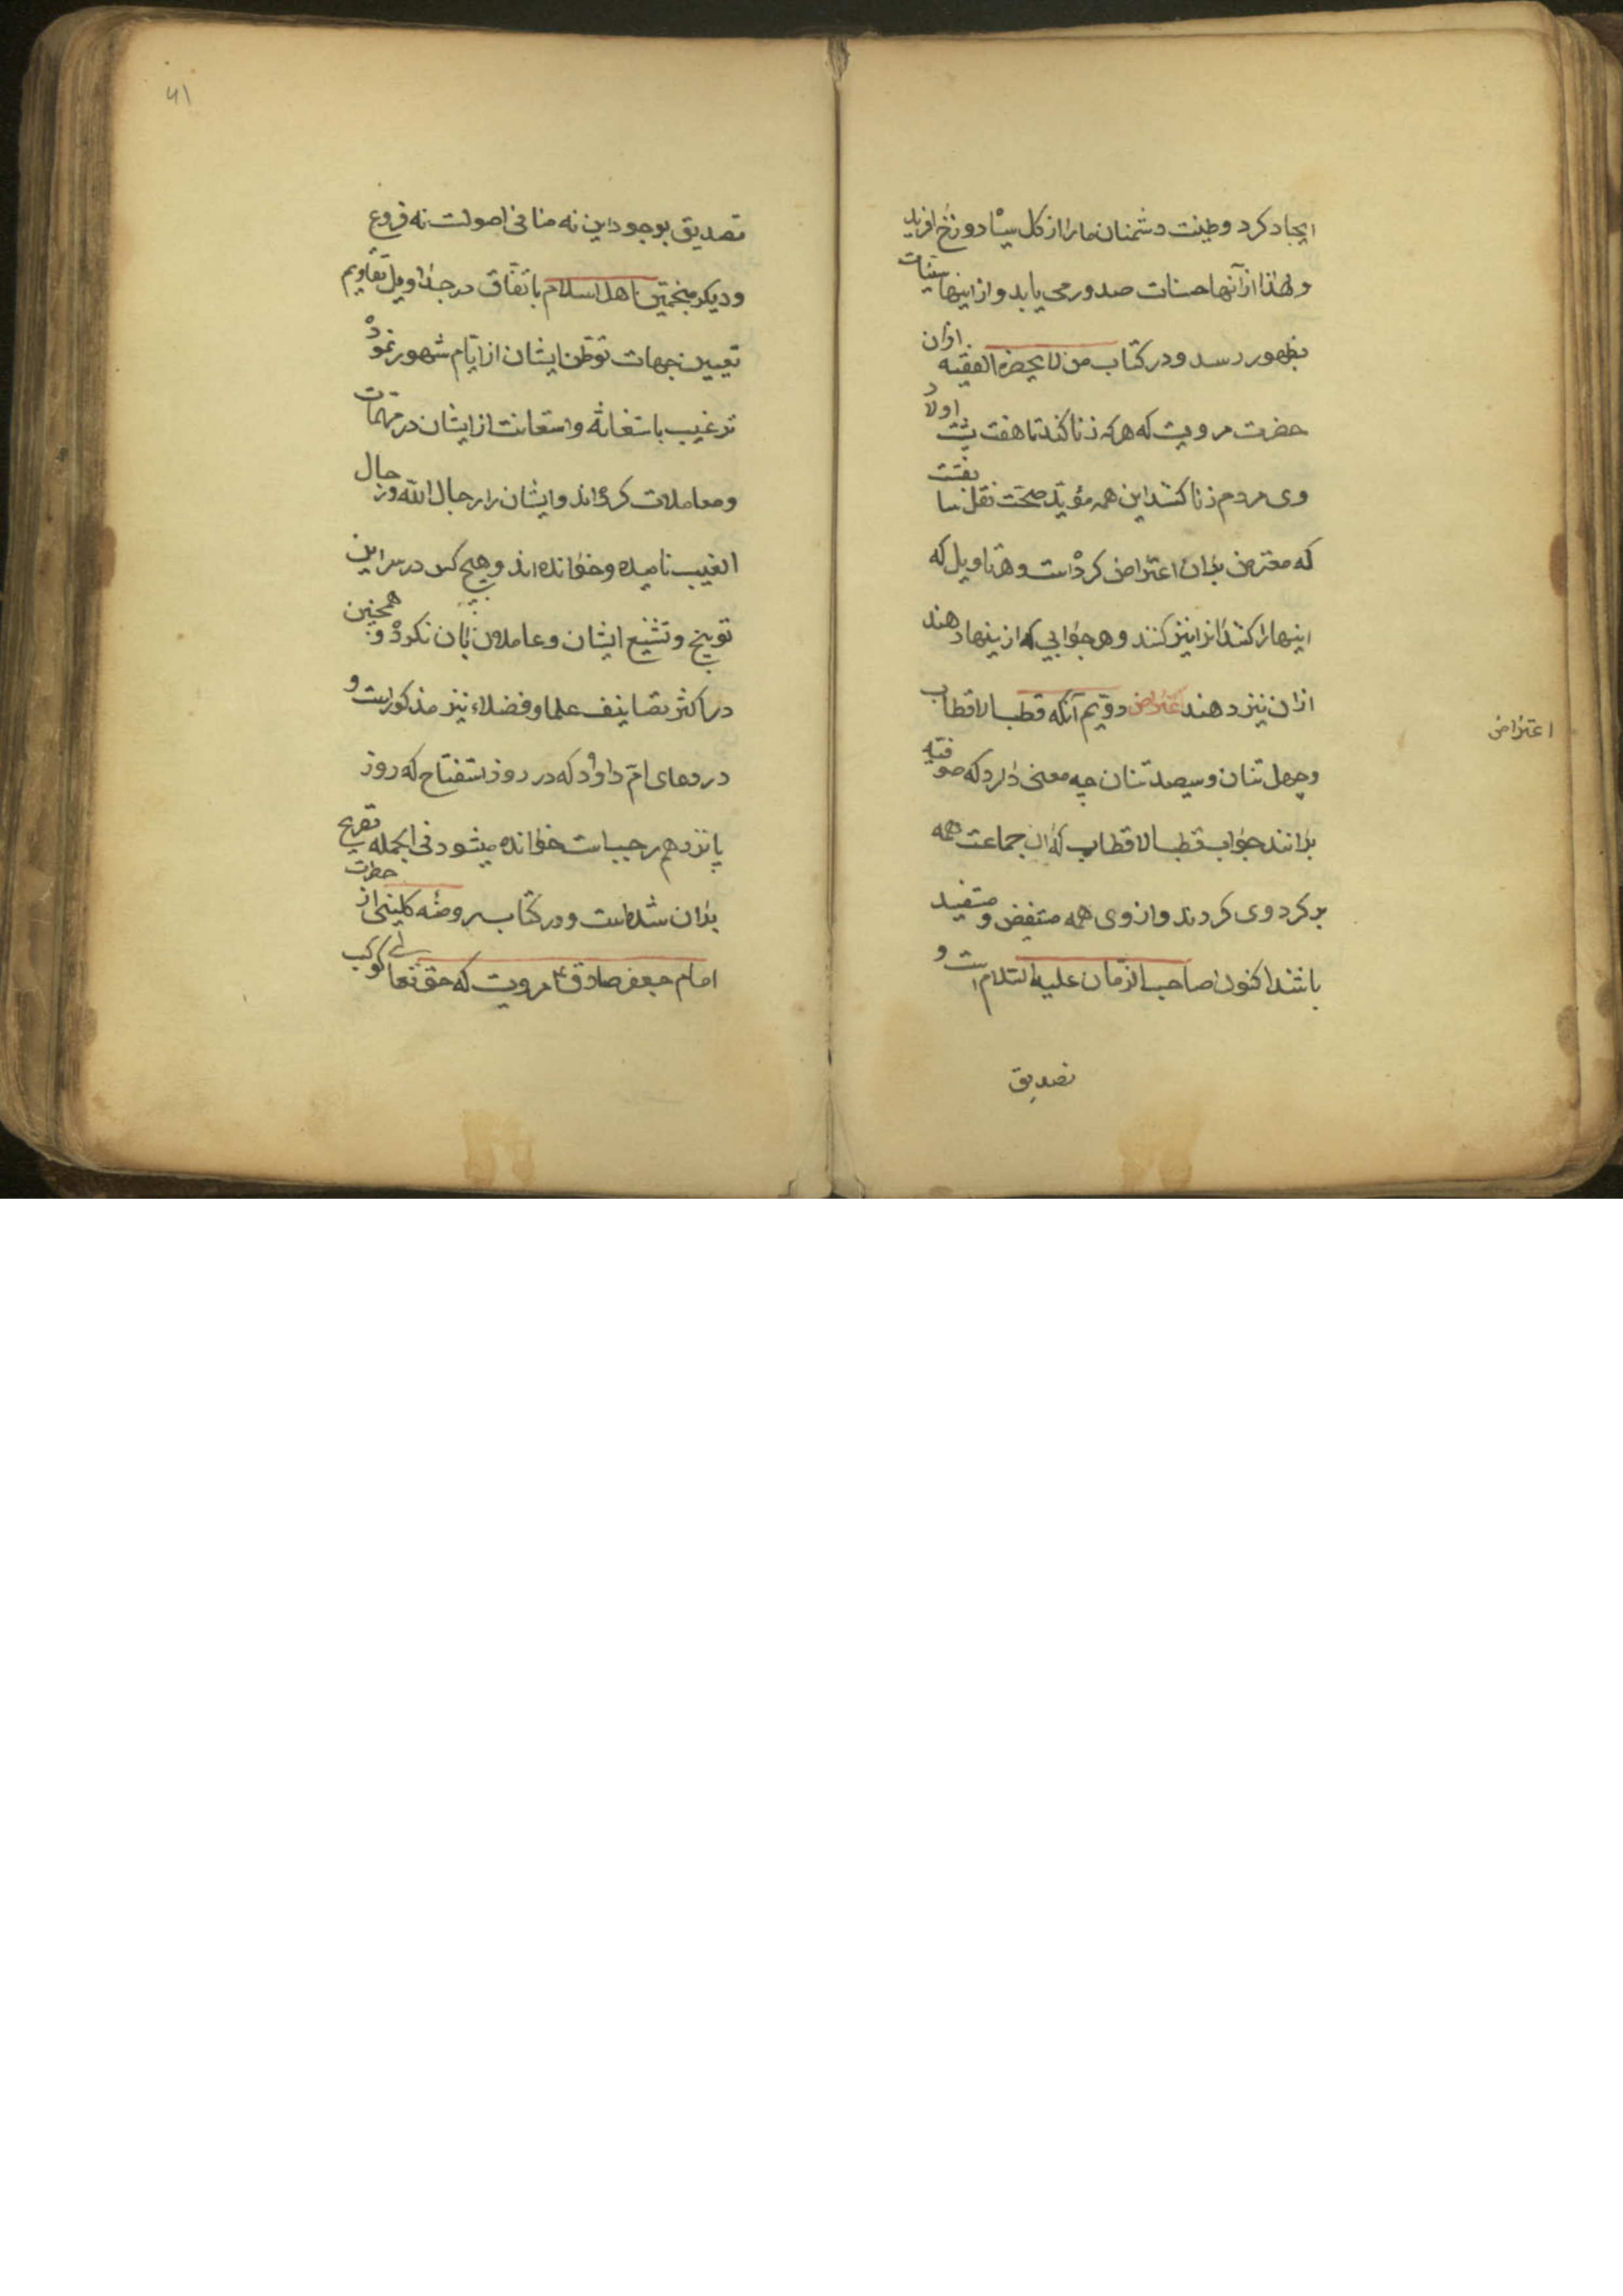 ایجاد کرد وطینت دشمنان مارا از کل سیاه دوزخ افرید
ولهذا ازآنها حسنات صدور می یابد واز اینها سیّئات
بظهور رسد ودر کتاب من لا یحضره الفقیه ازان
حضرت مرویست که هرکه زنا کند تا هفت پشت اولاد
وی مردم زنا کنند این همه مؤیّد صحّت نقل
که معترض بدان اعتراض کرده است وهر تاویل که
اینهارا کنند انرا نیز کنند وهر جوابی که ازینها دهند
ازان نیز دهند اعتراض دویّم آنکه قطب الاقطاب
وچهل تنان وسیصد تنان چه معنی دارد که صوفیّه
بدانند جواب قطب الاقطاب که ان جماعت همه
بر کرد وی کردند واز وی همه مستفیض ومستفید
باشند اکنون صاحب الزّمان علیه السّلام است و
تصدیق
اعتراض
۶۱
تصدیق بوجود این نه منافی اصولست نه فروع
ودیکر منجّمین اهل اسلام باتّفاق در جداویل تقاویم
تعیین جهات توطّن ایشان از ایّام شهور نموده
ترغیب باستغاثه واستعانت از ایشان در مهمّات
ومعاملات کرده اند وایشان را رجال الله ورجال
الغیب نامیده وخوانده اند وهیچ کس در سر این
توبیخ وتشنیع ایشان وعاملان بان نکرده وهمچنین
در اکثر تصانیف علما وفضلاء نیز مذکور است و
در دعای امّ داود که در روز استفتاح که روز
پانزدهم رجب است خوانده میشود فی الجمله تصریح
بدان شده است ودر کتاب روضه کلینی از حضرت
امام جعفر صادق ع مرویست که حق تعالی کوکب